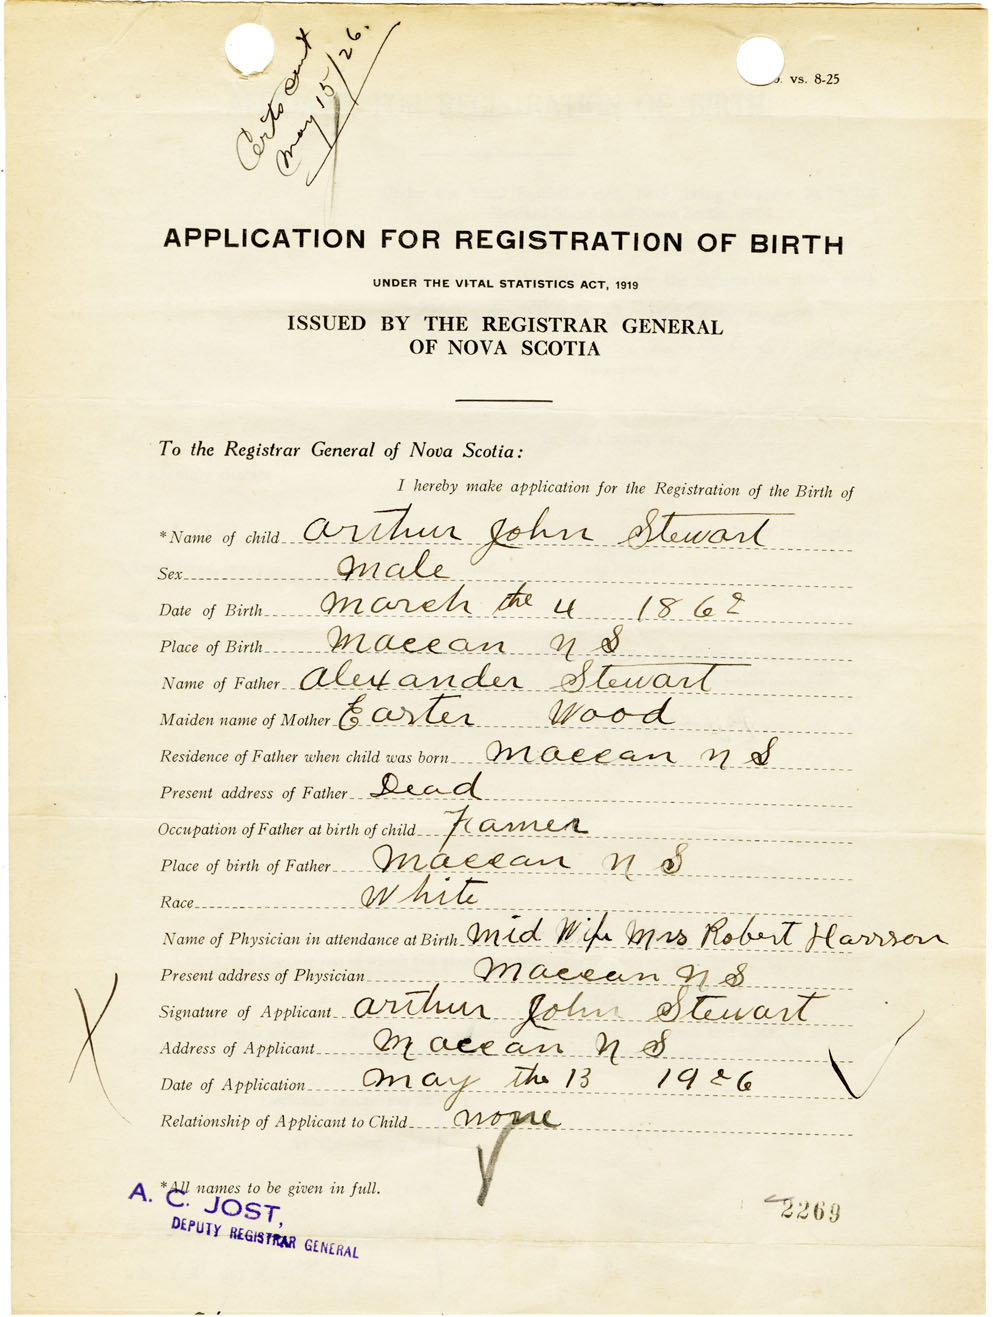 Certs sent
May 15/26.
. vs. 8-25
APPLICATION FOR REGISTRATION OF BIRTH
UNDER THE VITAL STATISTICS ACT, 1919
ISSUED BY THE REGISTRAR GENERAL
OF NOVA SCOTIA
To the Registrar General of Nova Scotia:
I hereby make application for the Registration of the Birth of
*Name of child Arthur John Stewart
Sex Male
Date of Birth March the 4 1862
Place of Birth Maccan N S
Name of Father Alexander Stewart
Maiden name of Mother Easter Wood
Residence of Father when child was born Maccan N S
Present address of Father Dead
Occupation of Father at birth of child Famer
Place of birth of Father Maccan N S
Race White
Name of Physician in attendance at Birth Mid Wife Mrs Robert Harrson
Present address of Physician Maccan N S
Signature of Applicant Arthur John Stewart
Address of Applicant Maccan N S
Date of Application May the 13 1926
Relationship of Applicant to Child none
*All names to be given in full.
A. C. JOST,
DEPUTY REGISTRAR GENERAL
2269